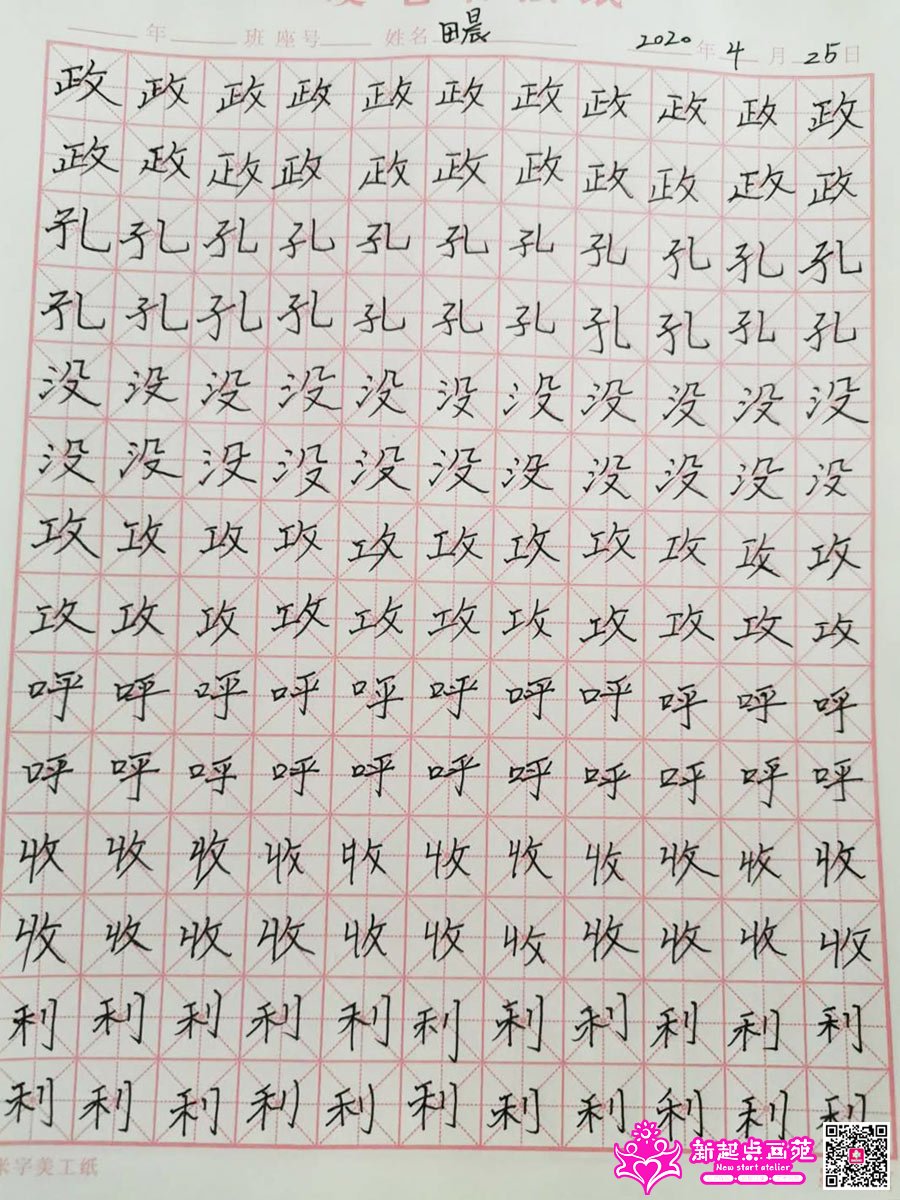 年 班 座号 姓名 田晨 2020年 4月 25日
政政政政政政政政政政政
政政政政政政政政政政政
孔孔孔孔孔孔孔孔孔孔孔
孔孔孔孔孔孔孔孔孔孔孔
没没没没没没没没没没没
没没没没没没没没没没没
攻攻攻攻攻攻攻攻攻攻攻
攻攻攻攻攻攻攻攻攻攻攻
呼呼呼呼呼呼呼呼呼呼呼
呼呼呼呼呼呼呼呼呼呼呼
收收收收收收收收收收收
收收收收收收收收收收收
利利利利利利利利利利利
利利利利利利利利利利利
米字美工纸
新起点画苑
New start atelier